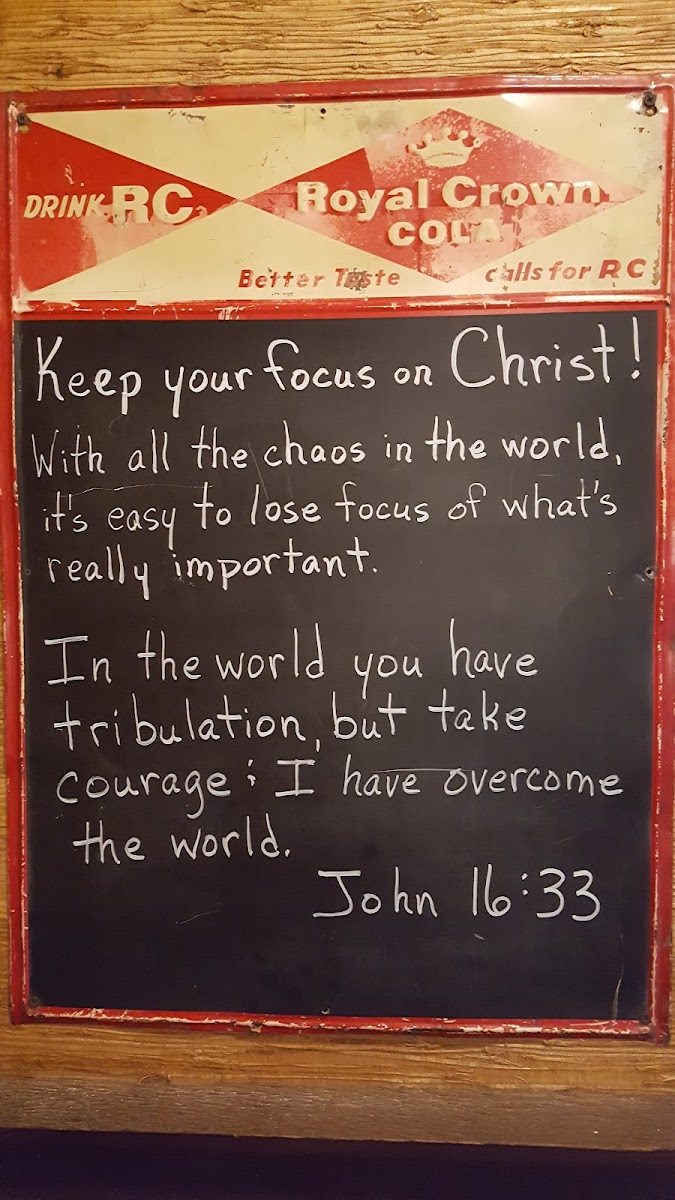 DRINK RC
Royal Crown
COLA
Better Taste calls for RC
Keep your focus on Christ!
With all the chaos in the world,
it's easy to lose focus of what's
really important.
In the world you have
tribulation, but take
courage; I have overcome
the world.
John 16:33